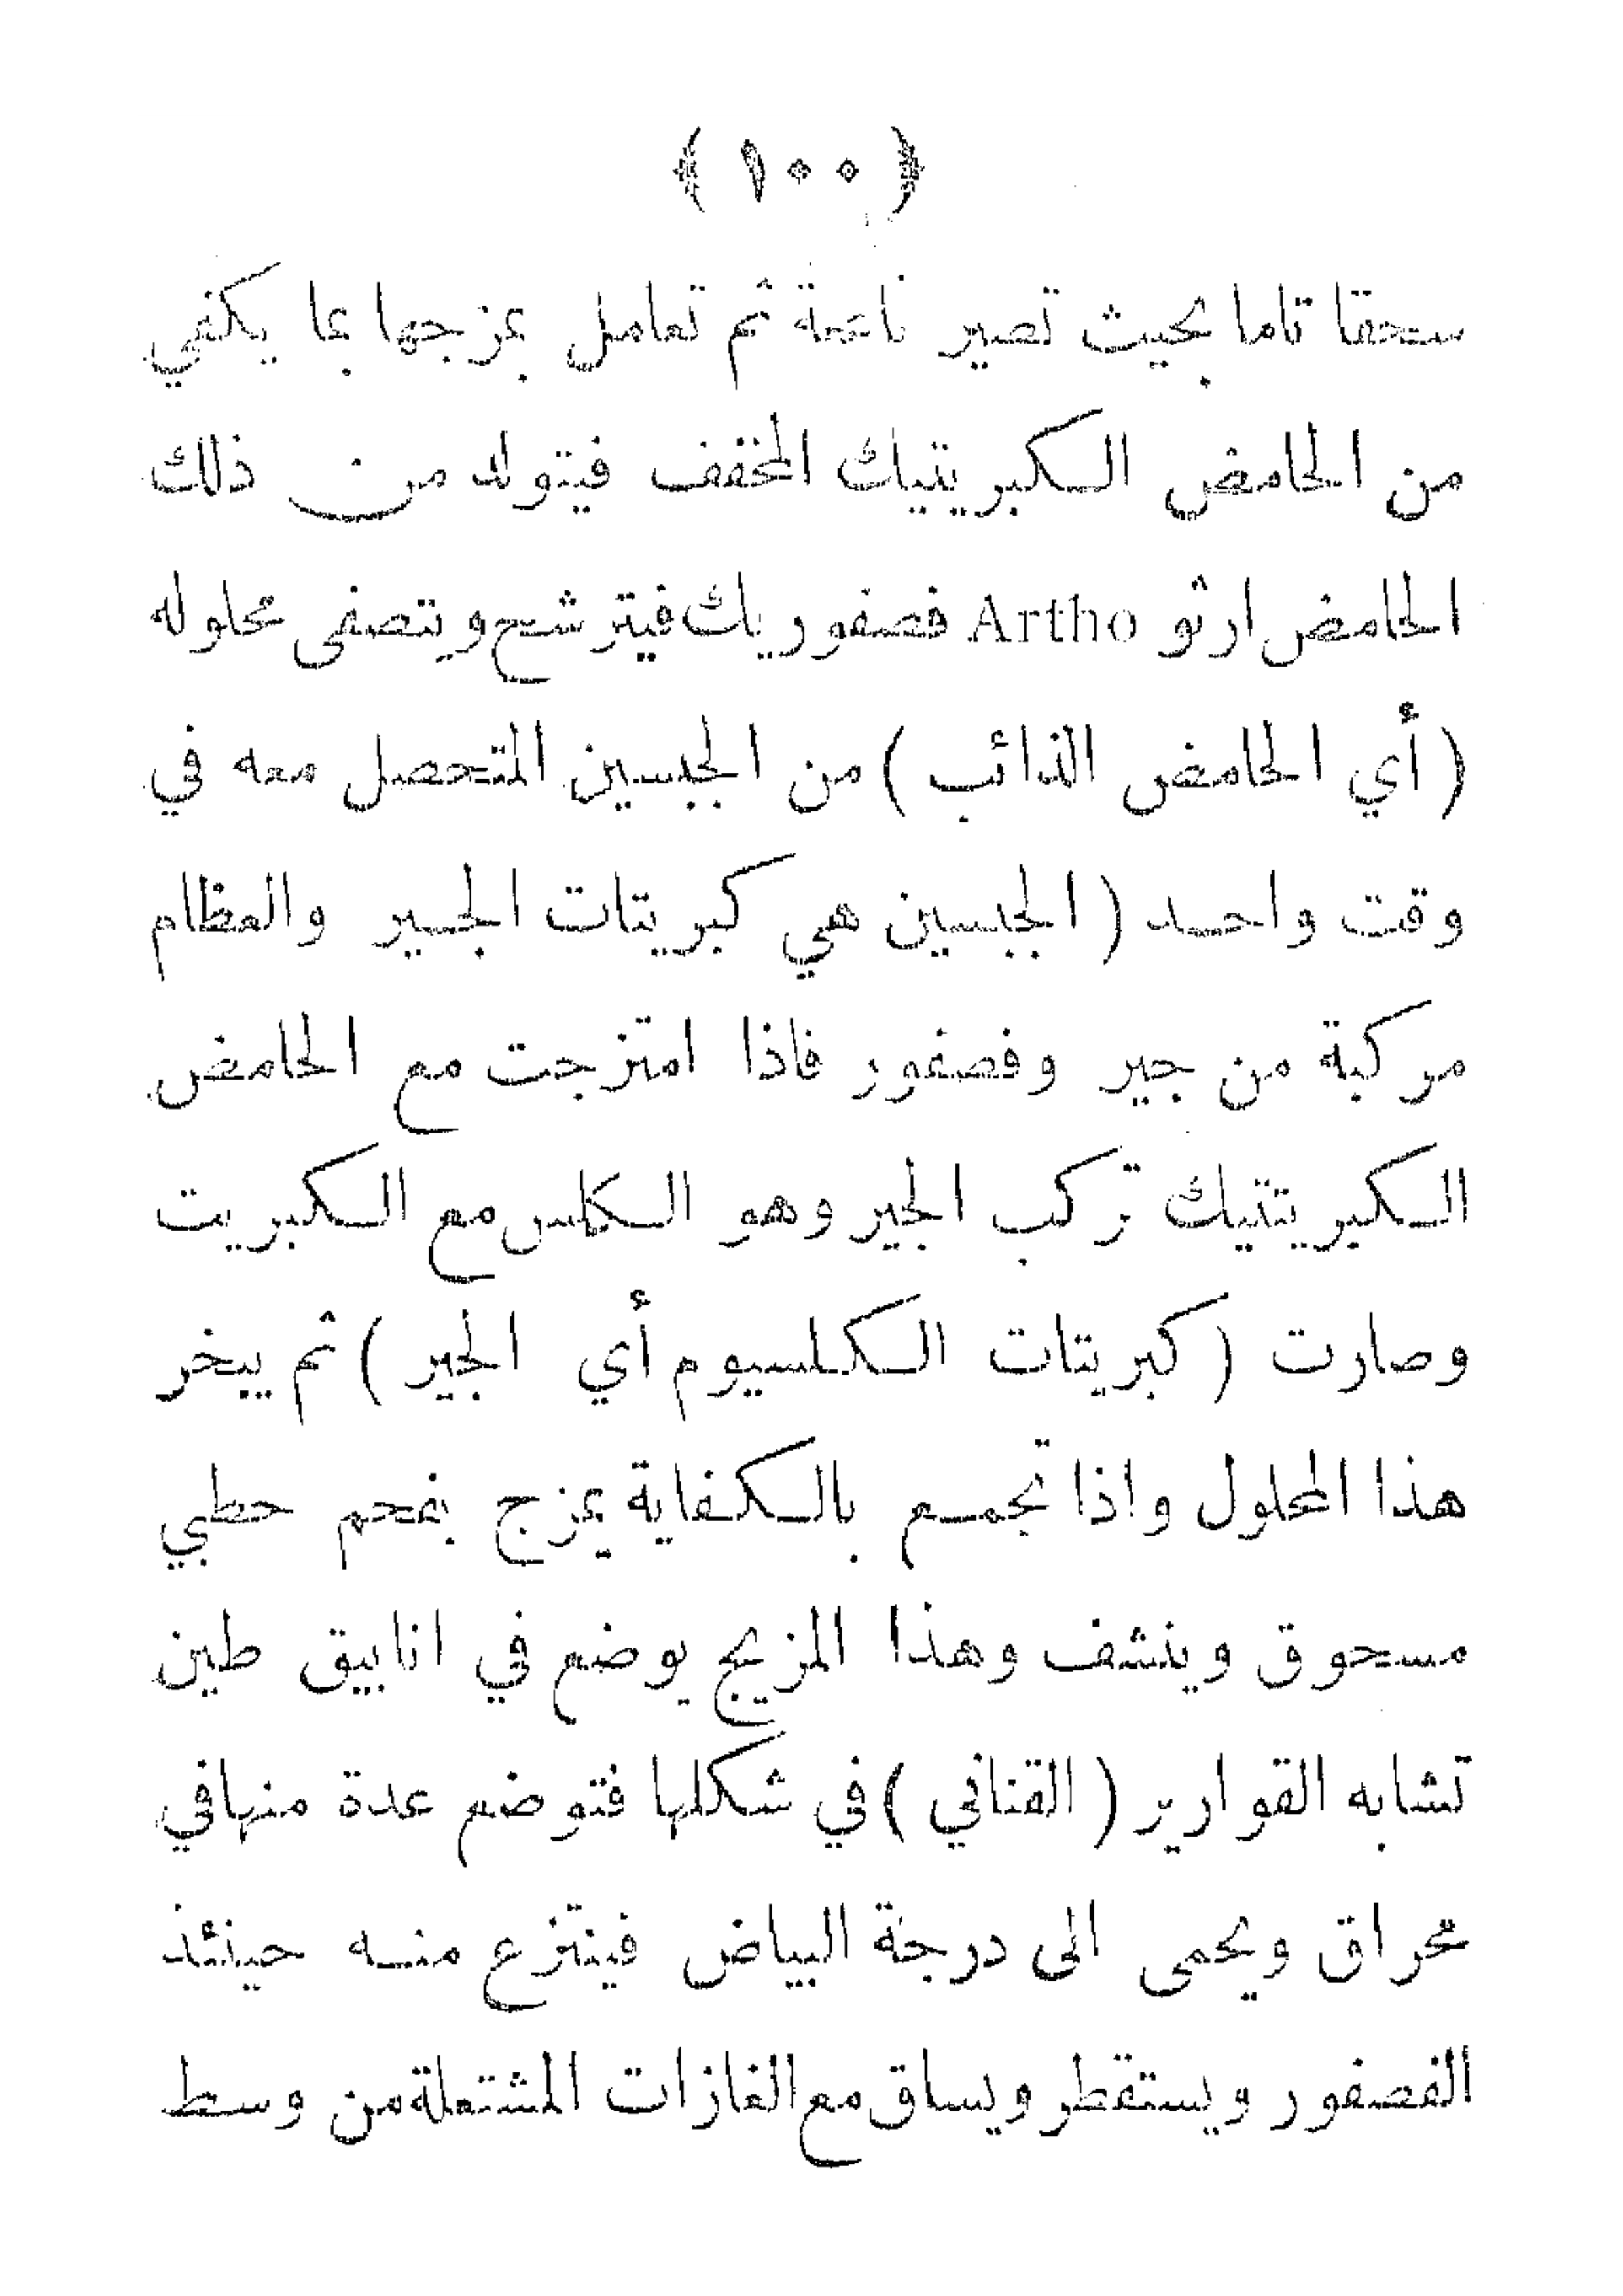 ﴿ ١٠٠ ﴾
سحقا تاما بحيث تصير ناعمة ثم تعامل بمزجها بما يكفي
من الحامض الكبريتيك المخفف فيتولد من ذلك
الحامض ارثو Artho فصفوريك فيترشح ويتصفى محلوله
( أي الحامض الذائب ) من الجبسين المتحصل معه في
وقت واحد ( الجبسين هي كبريتات الجير والعظام
مركبة من جير وفصفور فاذا امتزجت مع الحامض
الكبريتيك تركب الجير وهو الكلس مع الكبريت
وصارت ( كبريتات الكلسيوم أي الجير ) ثم يبخر
هذا المحلول واذا تجمع بالكفاية يمزج بفحم حطبي
مسحوق وينشف وهذا المزيج يوضع في انابيق طين
تشابه القوارير ( القناني ) في شكلها فتوضع عدة منها في
محراق ويحمى الى درجة البياض فينتزع منه حينئذ
الفصفور ويستقطر ويساق مع الغازات المشتعلة من وسط